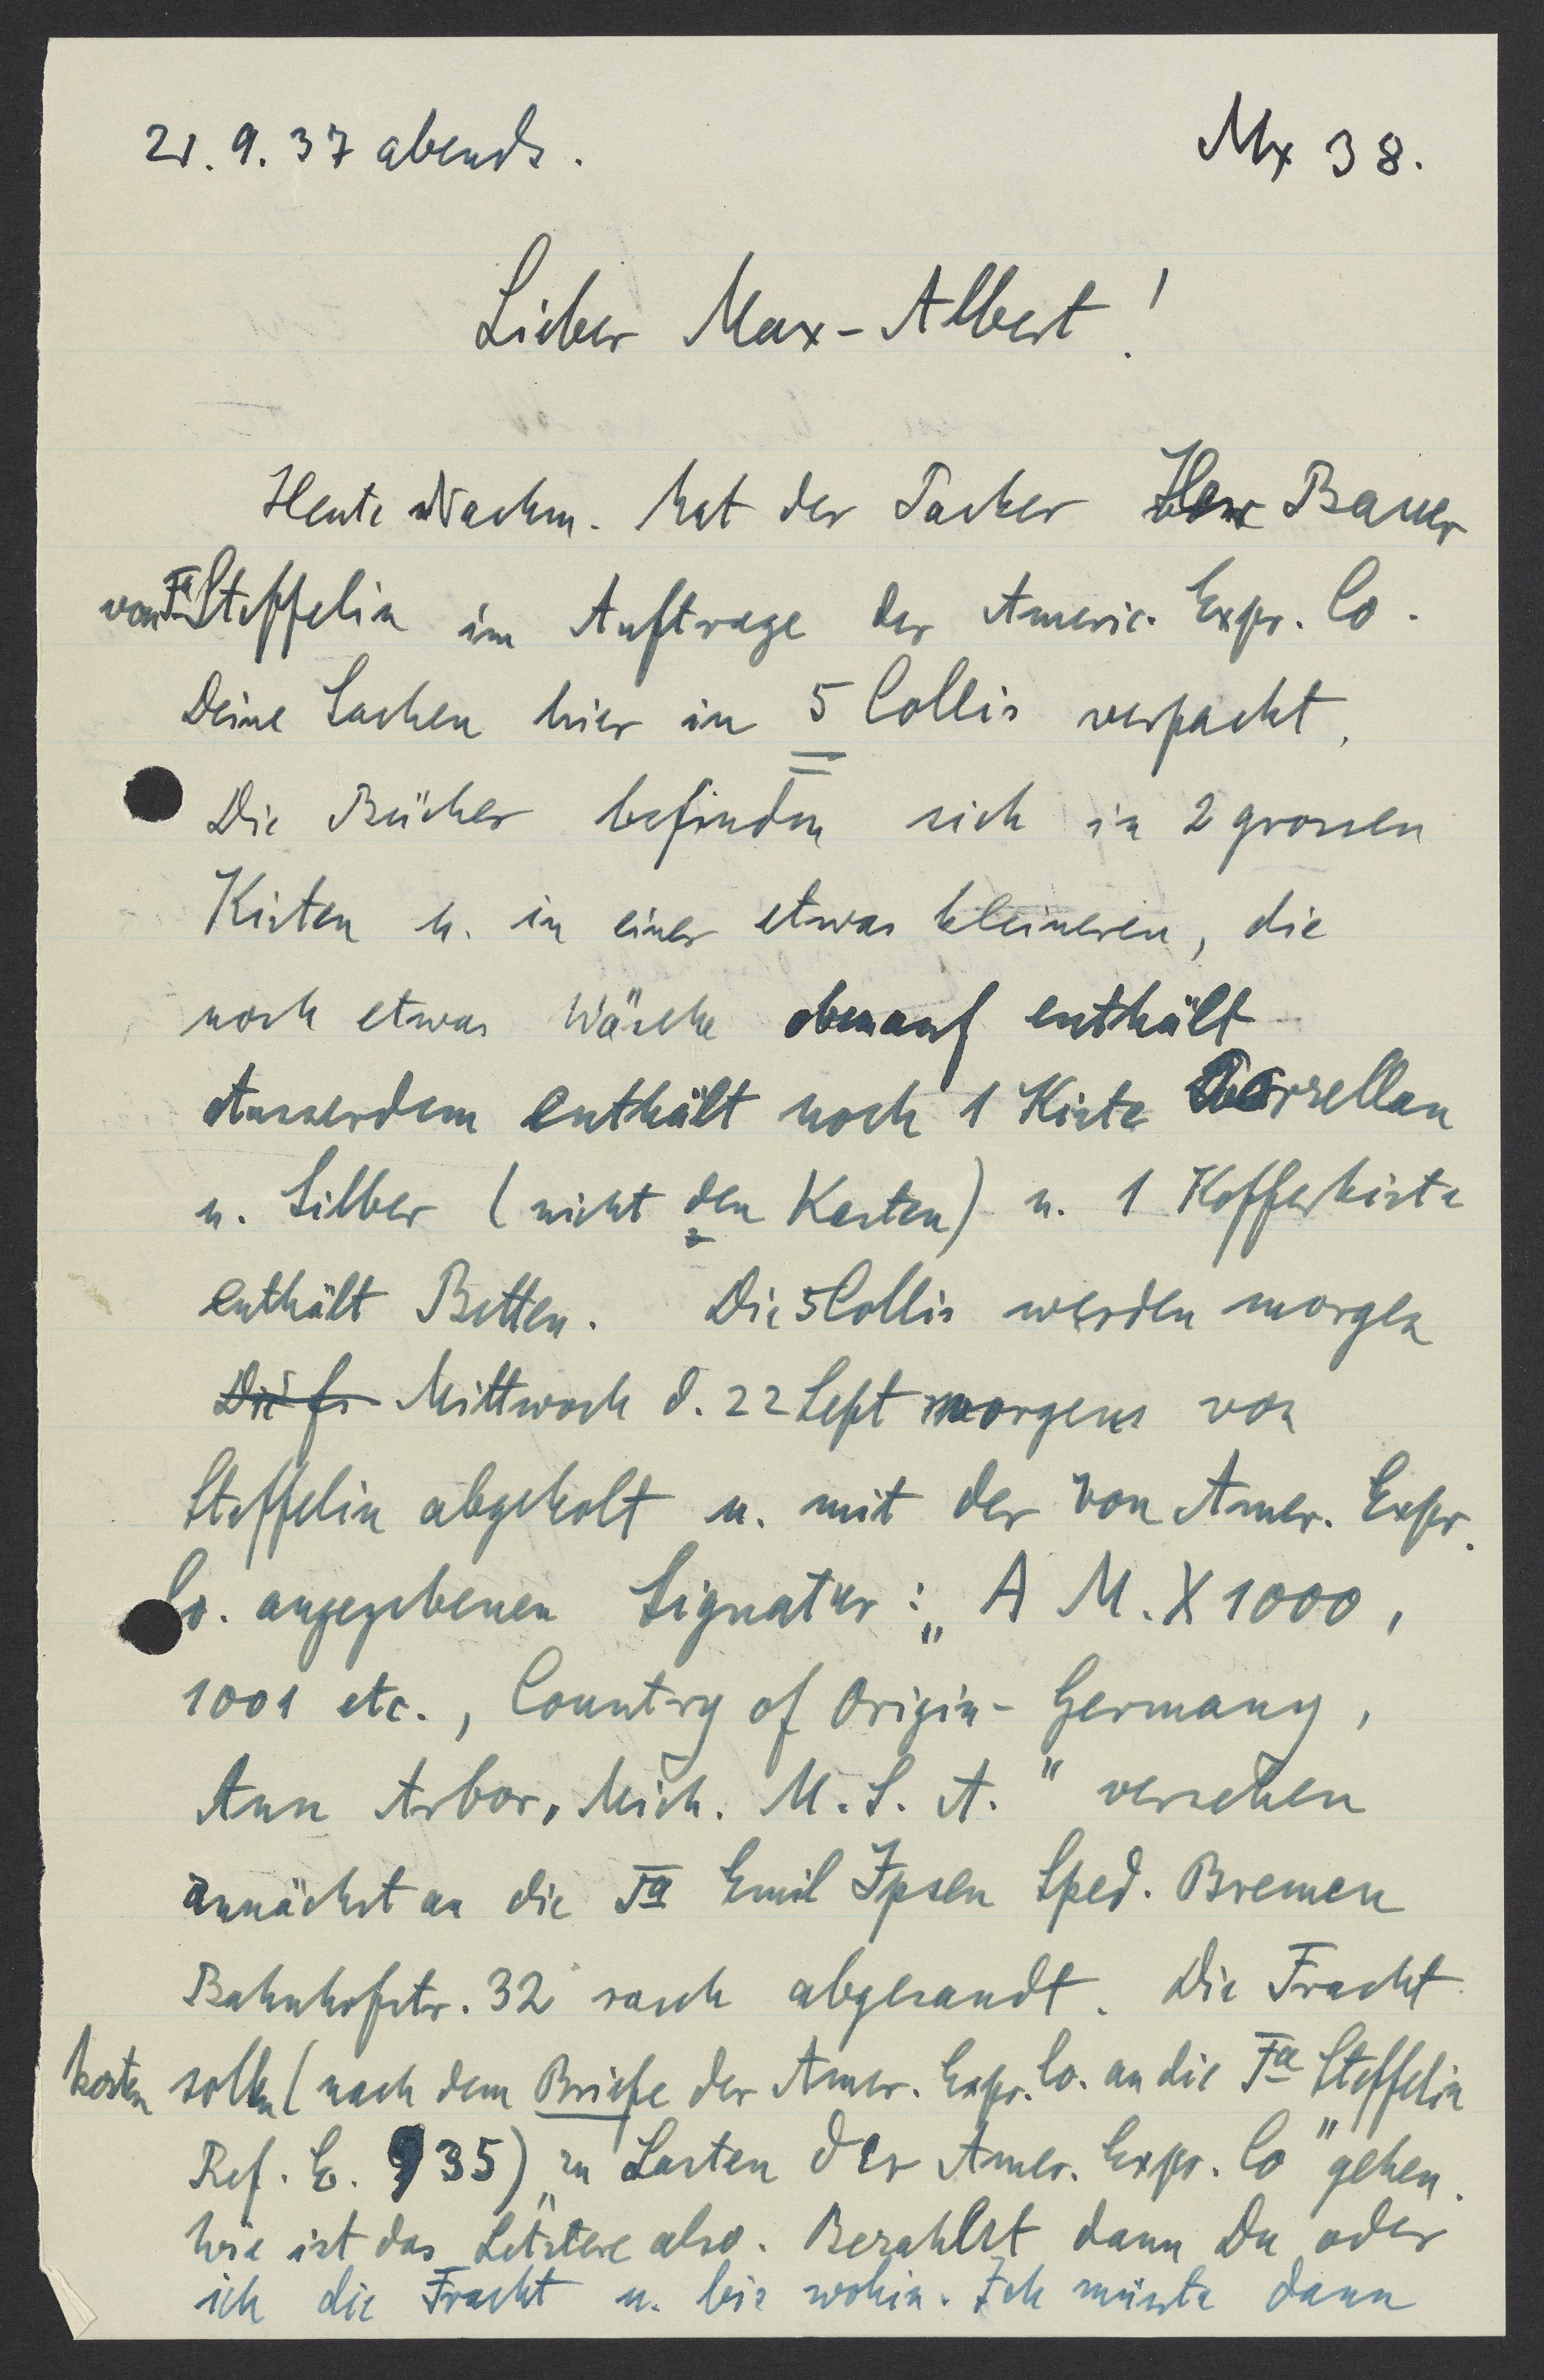 21. 9. 37 abends.
Mx 38.
Lieber Max-Albert!
Heute Nachm. hat der Packer Herr Bauer
von Fa Steffelin im Auftrage der Americ. Expr. Co.
Deine Sachen hier in 5 Collis verpackt.
Die Bücher befinden sich in 2 grossen
Kisten u. in einer etwas kleineren, die
noch etwas Wäsche obenauf enthält
Ausserdem enthält noch 1 Kiste Porzellan
u. Silber (nicht den Kasten) u. 1 Kofferkiste
enthält Betten. Die 5 Collis werden morgen
Mittwoch d. 22 Sept morgens von
Steffelin abgeholt u. mit der von Amer. Expr.
Co. angegebenen Signatur: „A M. X 1000,
1001 etc., Country of Origin- Germany,
Ann Arbor, Mich. U. S. A." versehen
zunächst an die Fa Emil Ipsen Sped. Bremen
Bahnhofstr. 32 rasch abgesandt. Die Fracht
kosten sollen (nach dem Briefe der Amer. Expr. Co. an die Fa Steffelin
Ref. E. 935) „zu Lasten der Amer. Expr. Co" gehen.
Wie ist das Letztere also. Bezahlst dann Du oder
ich die Fracht u. bis wohin. Ich müsste dann